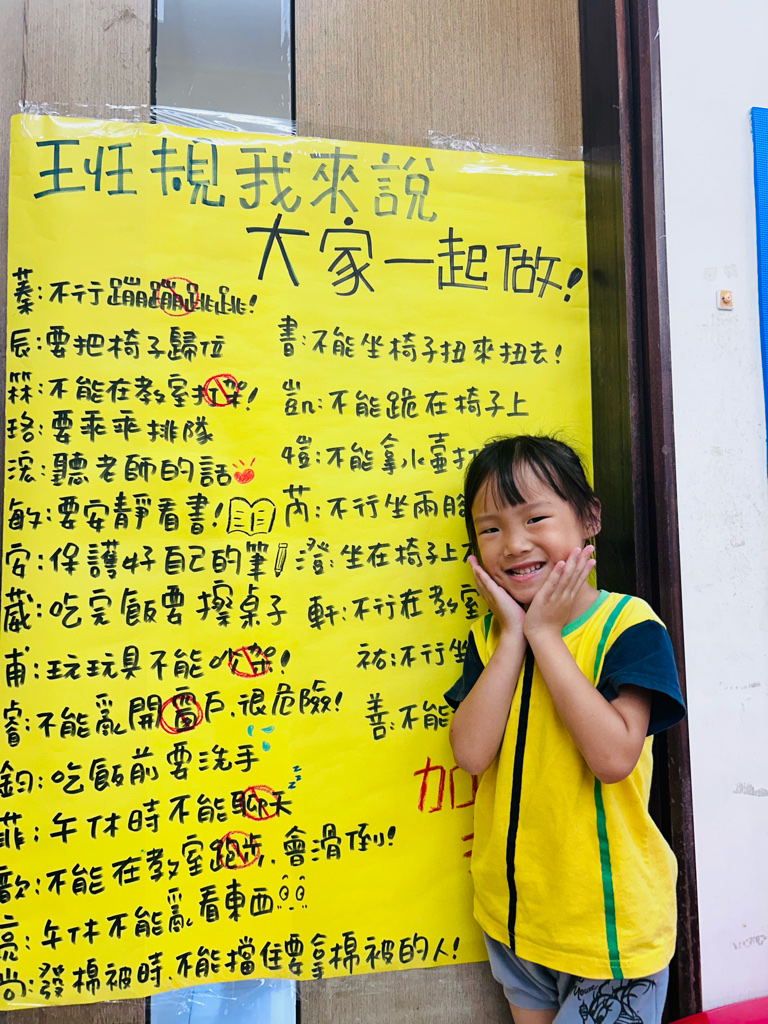 班規我來說
大家一起做!
蓁:不行蹦蹦跳跳!
辰:要把椅子歸位
箖:不能在教室打架!
珞:要乖乖排隊
浤:聽老師的話
敏:要安靜看書!
安:保護好自己的筆
葳:吃完飯要擦桌子
甫:玩玩具不能吵架!
睿:不能亂開窗戶,很危險!
鈞:吃飯前要洗手
菲:午休時不能聊天
歆:不能在教室跑步,會滑倒!
亮:午休不能亂看東西
尚:發棉被時,不能擋住要拿棉被的人!
書:不能坐椅子扭來扭去!
凱:不能跪在椅子上
愷:不能拿水壺打
芮:不行坐兩腳
澄:坐在椅子上
軒:不行在教室
祐:不行坐
善:不能
加
Your